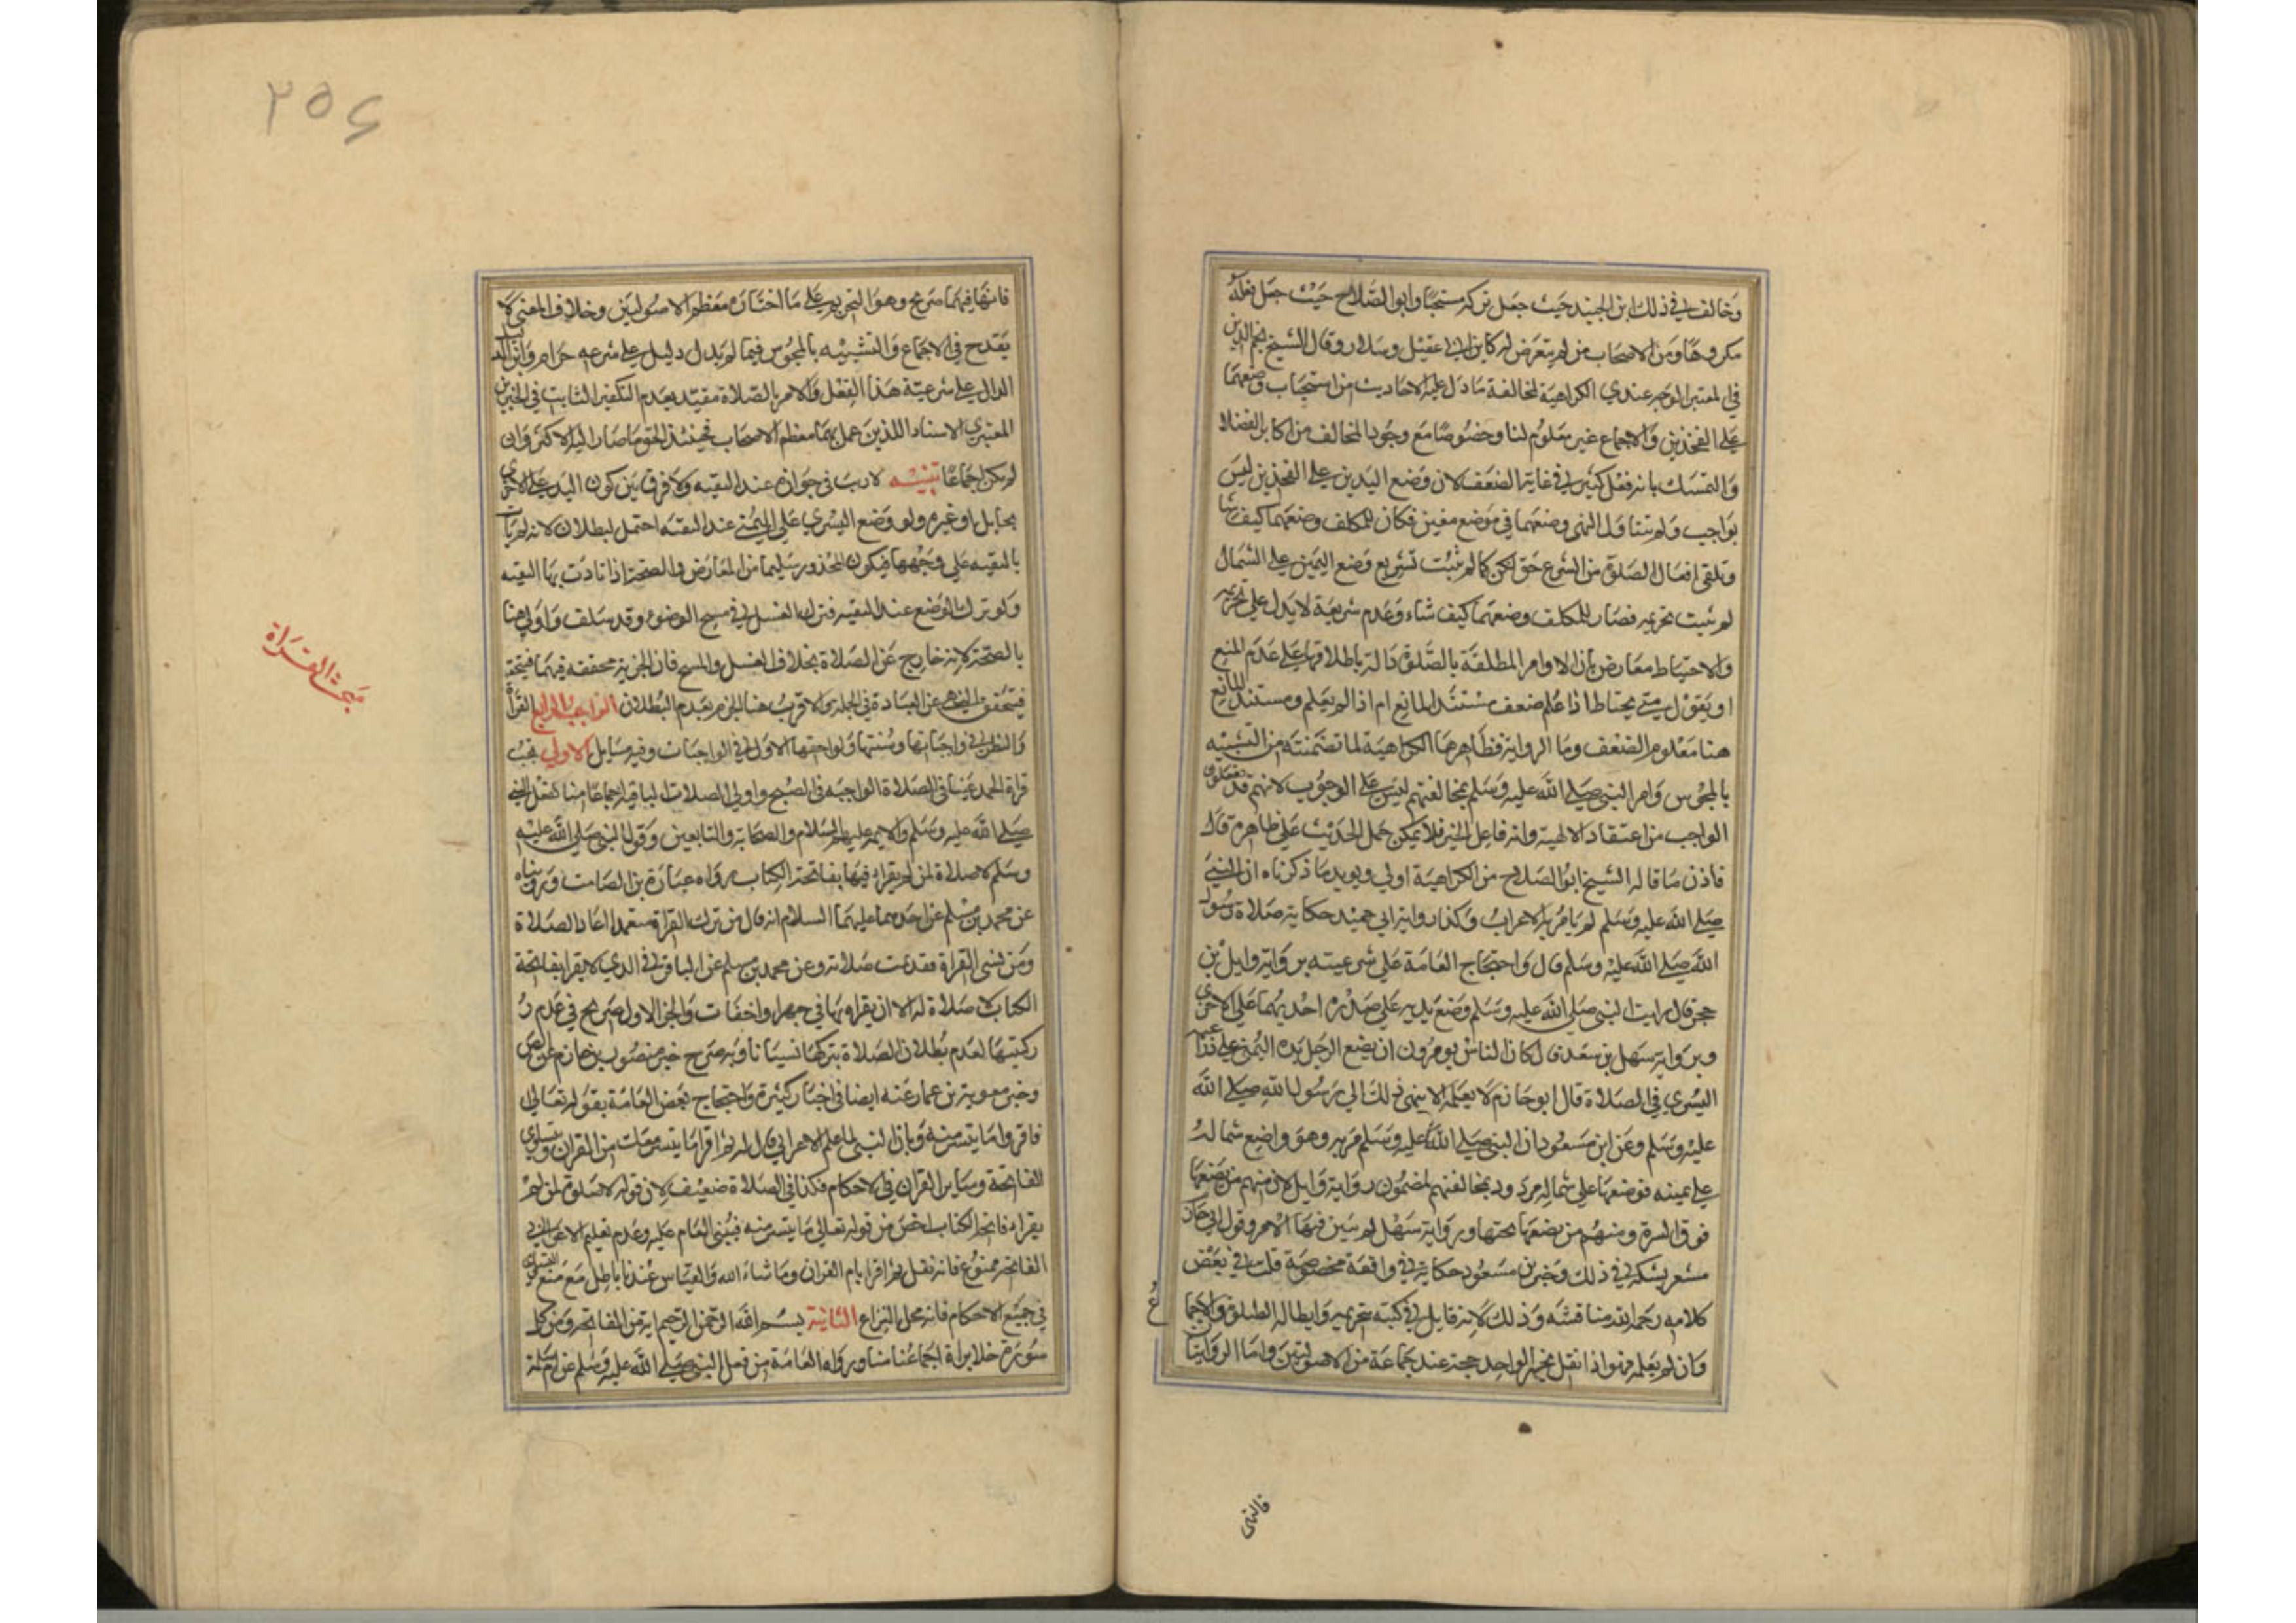 وخالف في ذلك ابن الجنيد حيث جعل تركه مستحبا وابو الصلاح حيث جعل فعله
مكروها ومن الاصحاب من لم يتعرض له كابن ابي عقيل وسلار وقال الشيخ نجم الدين
في المعتبر الوجه عندي الكراهية لمخالفة ما دل عليه الاحاديث من استحباب وضعهما
على الفخذين والاجماع غير معلوم لنا وخصوصا مع وجود المخالف من اكابر الفضلا
والتمسك بانه فعل كثير في غاية الضعف لان وضع اليدين على الفخذين ليس
بواجب ولم يتناول النهي وضعهما في موضع معين فكان للمكلف وضعهما كيف شا
وتلقى افعال الصلوة من الشرع حق لكن كما لم يثبت تشريع وضع اليمين على الشمال
لم يثبت تحريمه فصار للمكلف وضعهما كيف شاء وعدم شرعية لا يدل على تحريمه
والاحتياط معارض بان الاوامر المطلقة بالصلوة دالة باطلاقها على عدم المنع
او يقول متى يحتاط اذا علم ضعف مستند المانع ام اذا لم يعلم ومستند المانع
هنا معلوم الضعف وما الرواية فظاهرها الكراهية لما تضمنته من التشبيه
بالمجوس وامر النبي صلى الله عليه وسلم بمخالفتهم ليس على الوجوب لانهم قد يفعلون
الواجب من اعتقاد الالهية وانه فاعل الخير فلا يمكن حمل الحديث على ظاهره قال
فاذن ما قاله الشيخ ابو الصلاح من الكراهية اولى ويويد ما ذكرناه ان النبي
صلى الله عليه وسلم لم يامر به الاعراب وكذا رواية ابي حميد حكاية صلاة رسول
الله صلى الله عليه وسلم قال واحتجاج العامة على شرعيته برواية وايل بن
حجر قال رايت النبي صلى الله عليه وسلم وضع يديه على صدره احديهما على الاخرى
وبرواية سهل بن سعد قال كان الناس يومرون ان يضع الرجل يده اليمنى على ذراعه
اليسرى في الصلاة قال ابو حازم لا يعلمه الا ينهى ذلك الى رسول الله صلى الله
عليه وسلم وعن ابن مسعود ان النبي صلى الله عليه وسلم مر به وهو واضع شماله
على يمينه فوضعها على شماله مردود بمخالفتهم لمضمون رواية وايل لان منهم من يضعها
فوق السرة ومنهم من يضعها تحتها ورواية سهل لم يبين فيها الامر وقول ابي حازم
مشعر بشكه في ذلك وخبر بن مسعود حكاية في واقعة مخصوصة قلت في بعض
كلامه رحمه الله مناقشه وذلك لانه قايل في كتبه بتحريمه وابطاله الصلوة والاجماع
وان لم يعلمه فهو اذا نقل بخبر الواحد حجة عند جماعة من الاصوليين واما الروايتان
فالنهى
٢٥٤
فانها فيهما صريح وهو التحريم على ما اختاره معظم الاصوليين وخلاف المعين لا
يقدح في الاجماع والتشبيه بالمجوس فيما لم يدل دليل على شرعه حرام واين الدليل
الدال على شرعية هذا الفعل والامر بالصلاة مقيد بعدم التكفير الثابت في الخبرين
المعتبري الاسناد اللذين عمل بهما معظم الاصحاب فحينئذ الحق ما صار اليه الاكثر وان
لم يكن اجماعا تنبيه لا ريب في جوازه عند التقيه ولا فرق بين كون اليد على الاخرى
بحايل او غيره ولو وضع اليسرى على اليمنى عند التقيه احتمل البطلان لانه لم يات
بالتقيه على وجهها فيكون المحذور سليما من المعارض والصحة اذا تادت بها التقيه
ولو ترك الوضع عند التقيه فترك الغسل في مسح الوضوء وقد سلف واولى هنا
بالصحة لانه خارج عن الصلاة بخلاف الغسل والمسح فان الجزية محققه فيهما فيتحقق
فيتحقق النهي عن العبادة في الجملة والاقرب هنا الجزم بعدم البطلان الواجب الرابع القراة
والنظر في واجباتها وسننها ولواحقها الاول في الواجبات وفيه مسايل الاولى يجب
قراة الحمد عينا في الصلاة الواجبه في الصبح واولى الصلات الباقية اجماعا منا لفعل النبي
صلى الله عليه وسلم والايمه عليهم السلام والصحابة والتابعين وقول النبي صلى الله عليه
وسلم لا صلاة لمن لم يقرا فيها بفاتحة الكتاب رواه عبادة بن الصامت وروينا
عن محمد بن مسلم عن احدهما عليهما السلام انه قال من ترك القراة متعمدا اعاد الصلاة
ومن نسى القراة فقد تمت صلاته وعن محمد بن مسلم عن الباقر في الذي لا يقرا بفاتحة
الكتاب لا صلاة له الا ان يقرا بها في جهر او اخفات والخبر الاول صريح في عدم ر
ركنيتها لعدم بطلان الصلاة بتركها نسيانا وبه صرح خبر منصور بن حازم عن الص
وخبر معوية بن عمار عنه ايضا في اخبار كثيرة واحتجاج بعض العامة بقوله تعالى
فاقروا ما تيسر منه وبان النبي لما علم الاعرابي قال له ثم اقرا ما تيسر معك من القران وبتساوي
الفاتحة وساير القران في الاحكام فكذا في الصلاة ضعيف لان قوله لا صلوة لمن لم
يقراء فاتحة الكتاب اخص من قوله تعالى ما تيسر منه فيبنى العام عليه وعدم تعليم الاعرابي
الفاتحة ممنوع فانه نقل ثم اقرا بام القران وما شاء الله والقياس عندنا باطل مع منع التساوي
في جميع الاحكام فانه محل النزاع الثانية بسم الله الرحمن الرحيم اية من الفاتحة ومن كل
سورة خلا براة اجماعا منا ورواه العامة من فعل النبي صلى الله عليه وسلم عن ام سلمة
مبحث القراة